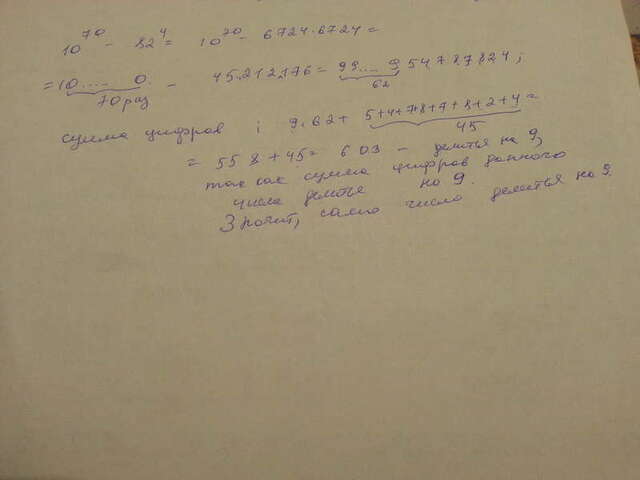 10^70 - 82^4 = 10^70 - 6724·6724 =
= 10.....0. - 45.212.176 = 99....9 54787824;
70 раз 62
сумма цифров : 9·62 + 5+4+7+8+7+8+2+4 =
45
= 558 + 45 = 603 - делится на 9,
так как сумма цифров данного
числа делится на 9.
Значит, само число делится на 9.